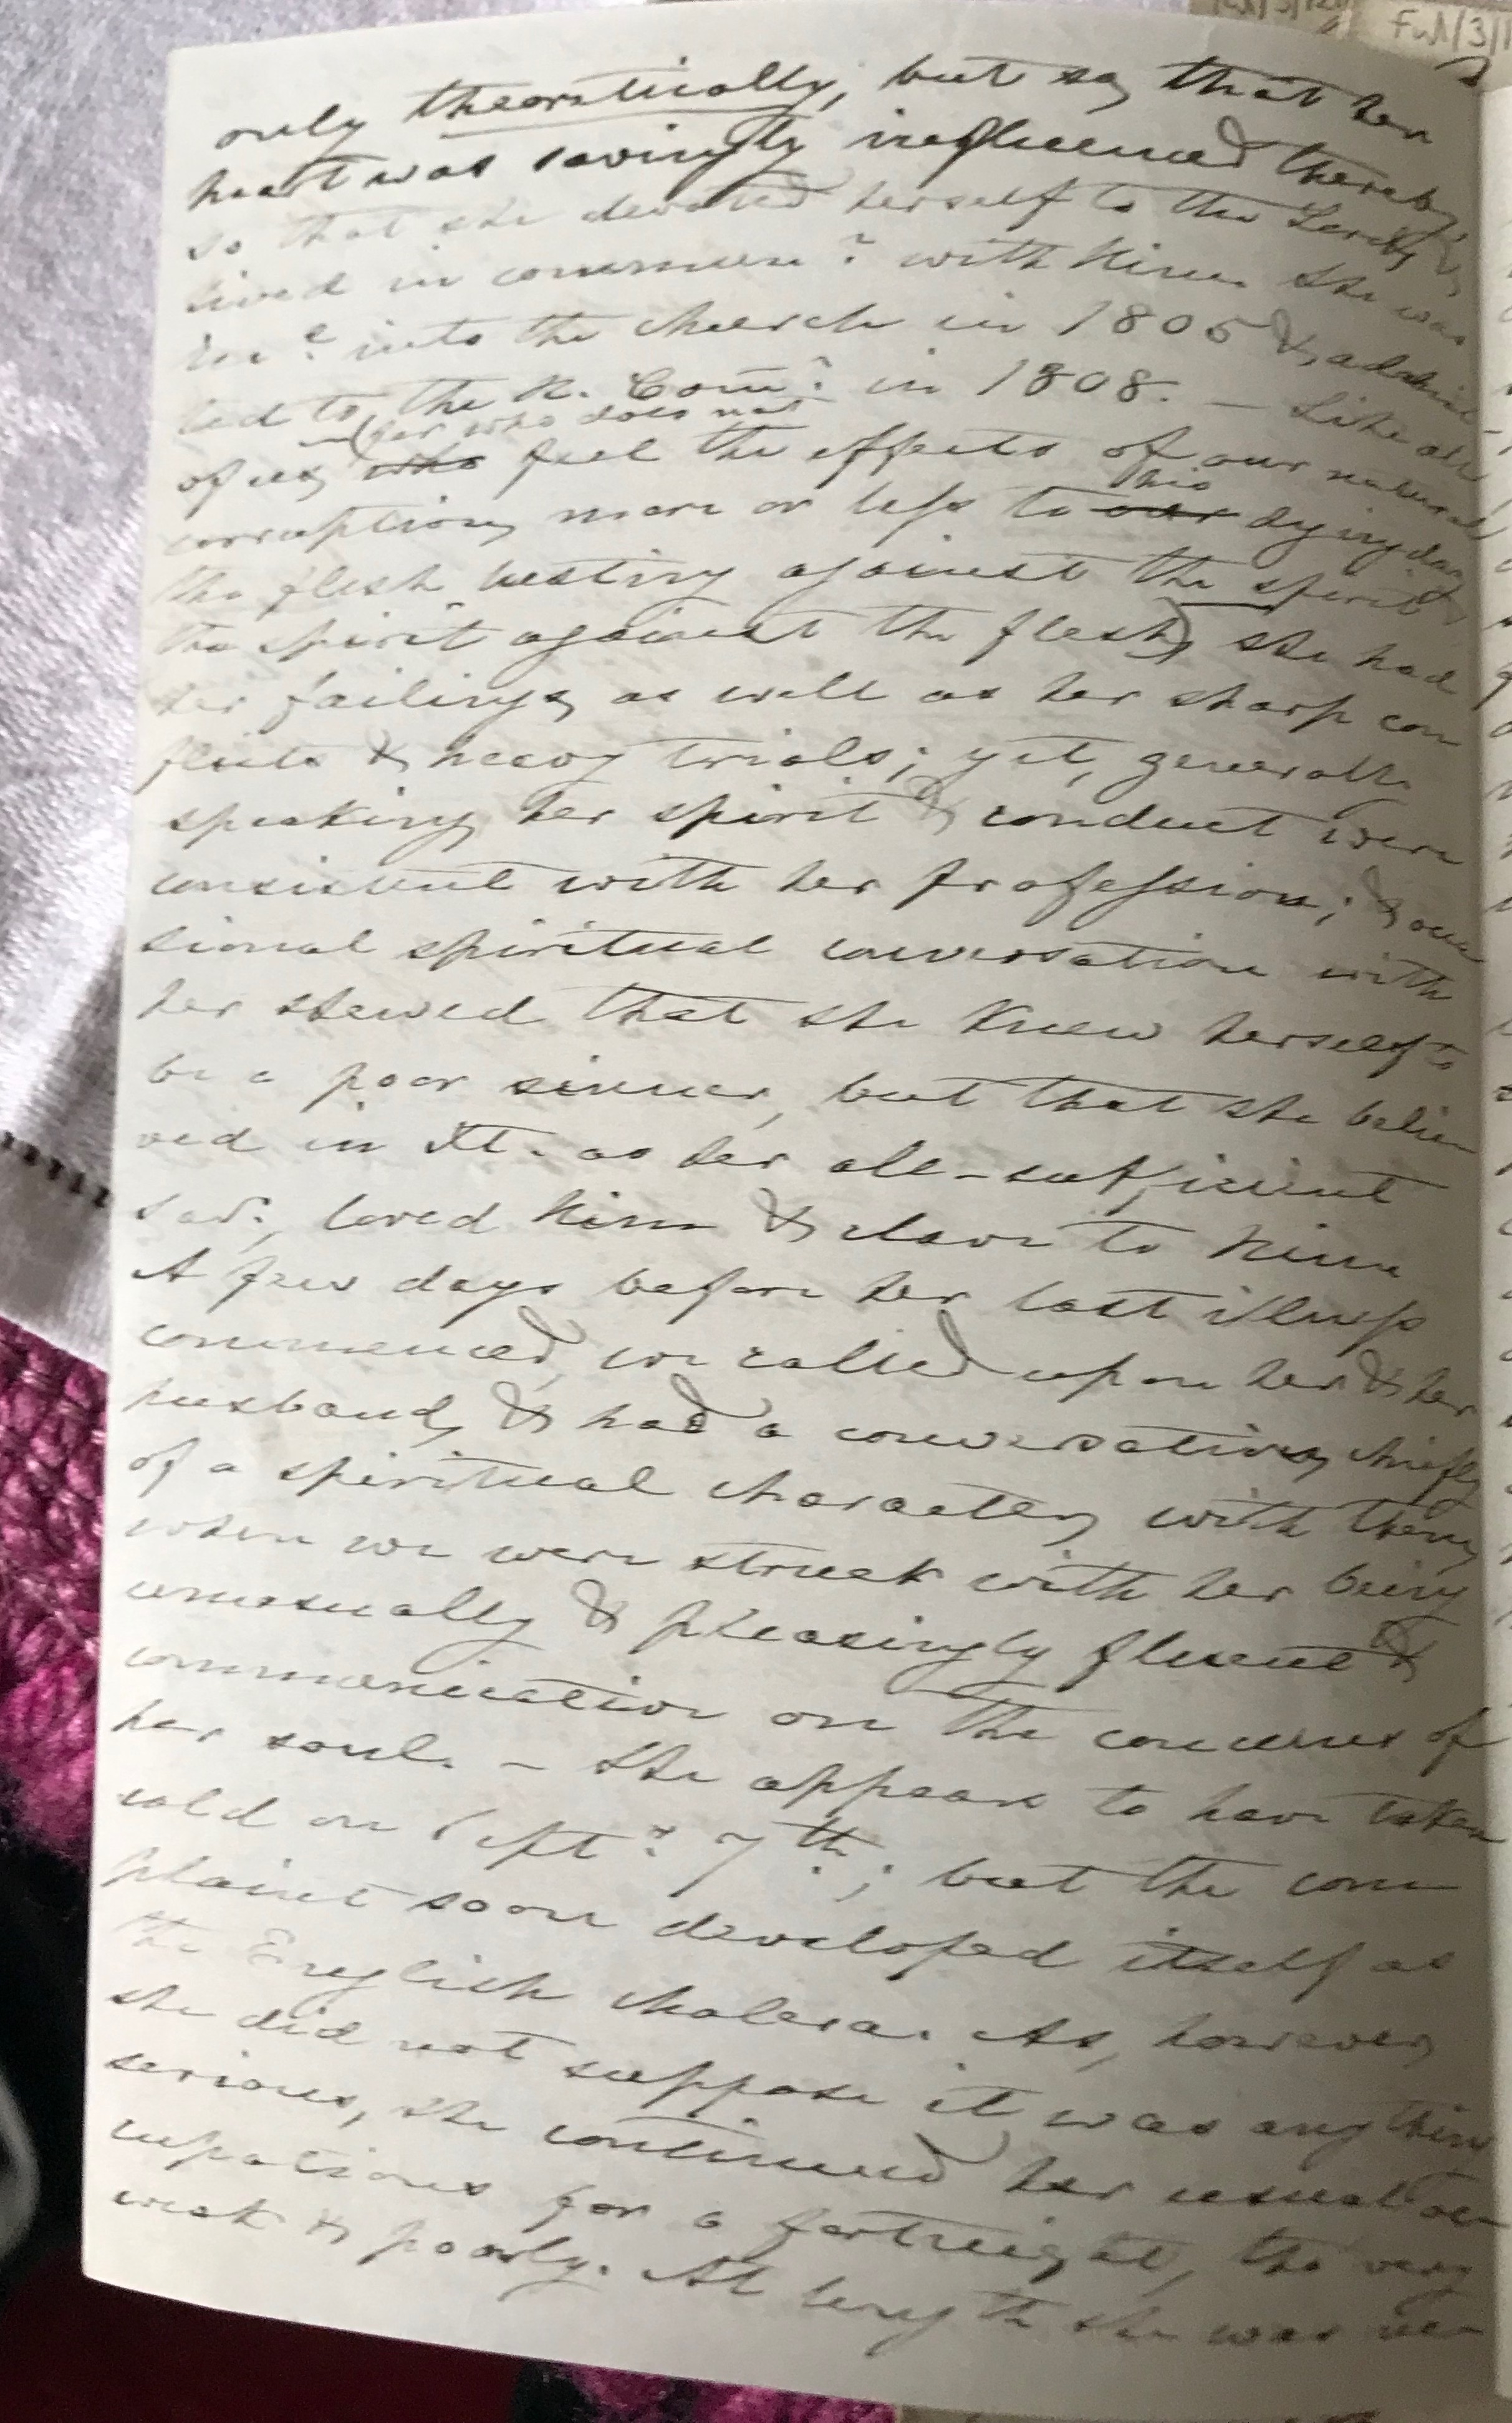 Ful/3/1
only theoretically, but so, that her
heart was savingly influenced thereby;
so that she devoted herself to the Lord, &
lived in commun.n with Him. She was
rec.d into the church in 1805 & admit-
ted to the H. Com.n in 1808. — Like all
of us, who (for who does not feel the effects of our natural
corruption, more or less to our his dying day,
the flesh lusting against the spirit &
the spirit against the flesh) she had
her failings, as well as her sharp con
flicts & heavy trials; yet, generally
speaking, her spirit & conduct were
consistent with her profession; & occa
sional spiritual conversation with
her shewed that she knew herself to
be a poor sinner, but that she belie
ved in Xt. as her all-sufficient
Sav.r, loved Him & clave to Him
A few days before her last illness
commenced, we called upon her & her
husband, & had a conversation, chiefly
of a spiritual character, with them,
when we were struck with her being
unusually & pleasingly fluent &
communicative on the concerns of
her soul. — She appears to have taken
cold on Sept.r 7th; but the com
plaint soon developed itself as
the English cholera. As, however,
she did not suppose it was any thing
serious, she continued her usual oc
cupations for a fortnight, tho very
weak & poorly. At length she was